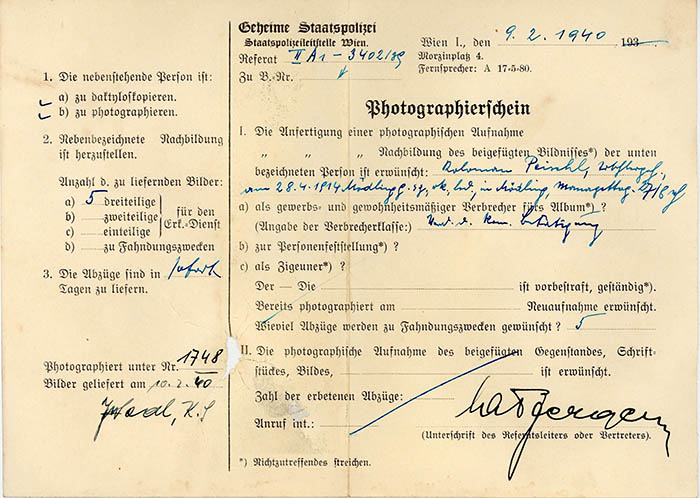 1. Die nebenstehende Person ist:
a) zu daktyloskopieren.
b) zu photographieren.
2. Nebenbezeichnete Nachbildung
ist herzustellen.
Anzahl d. zu liefernden Bilder:
a) 5 dreiteilige
b) zweiteilige
c) einteilige
d) zu Fahndungszwecken
für den
Erk.-Dienst
3. Die Abzüge sind in sofort
Tagen zu liefern.
Photographiert unter Nr. 1748
/40
Bilder geliefert am 10.2.40
K.S
Geheime Staatspolizei
Staatspolizeileitstelle Wien.
Referat II A1 - 3402/39
Zu B.-Nr.
Wien I., den 9. 2. 1940 193
Morzinplatz 4.
Fernsprecher: A 17-5-80.
Photographierschein
I. Die Anfertigung einer photographischen Aufnahme
„ „ Nachbildung des beigefügten Bildnisses*) der unten
bezeichneten Person ist erwünscht: Koloman
am 28.4.1914 Mödling led., in Mödling
a) als gewerbs- und gewohnheitsmäßiger Verbrecher fürs Album*)?
(Angabe der Verbrecherklasse:) Verd. d. kom. Betätigung
b) zur Personenfeststellung*) ?
c) als Zigeuner*) ?
Der — Die ist vorbestraft, geständig*).
Bereits photographiert am Neuaufnahme erwünscht.
Wieviel Abzüge werden zu Fahndungszwecken gewünscht ? 5
II. Die photographische Aufnahme des beigefügten Gegenstandes, Schrift-
stückes, Bildes, ist erwünscht.
Zahl der erbetenen Abzüge:
Anruf int.:
(Unterschrift des Referatsleiters oder Vertreters).
*) Nichtzutreffendes streichen.